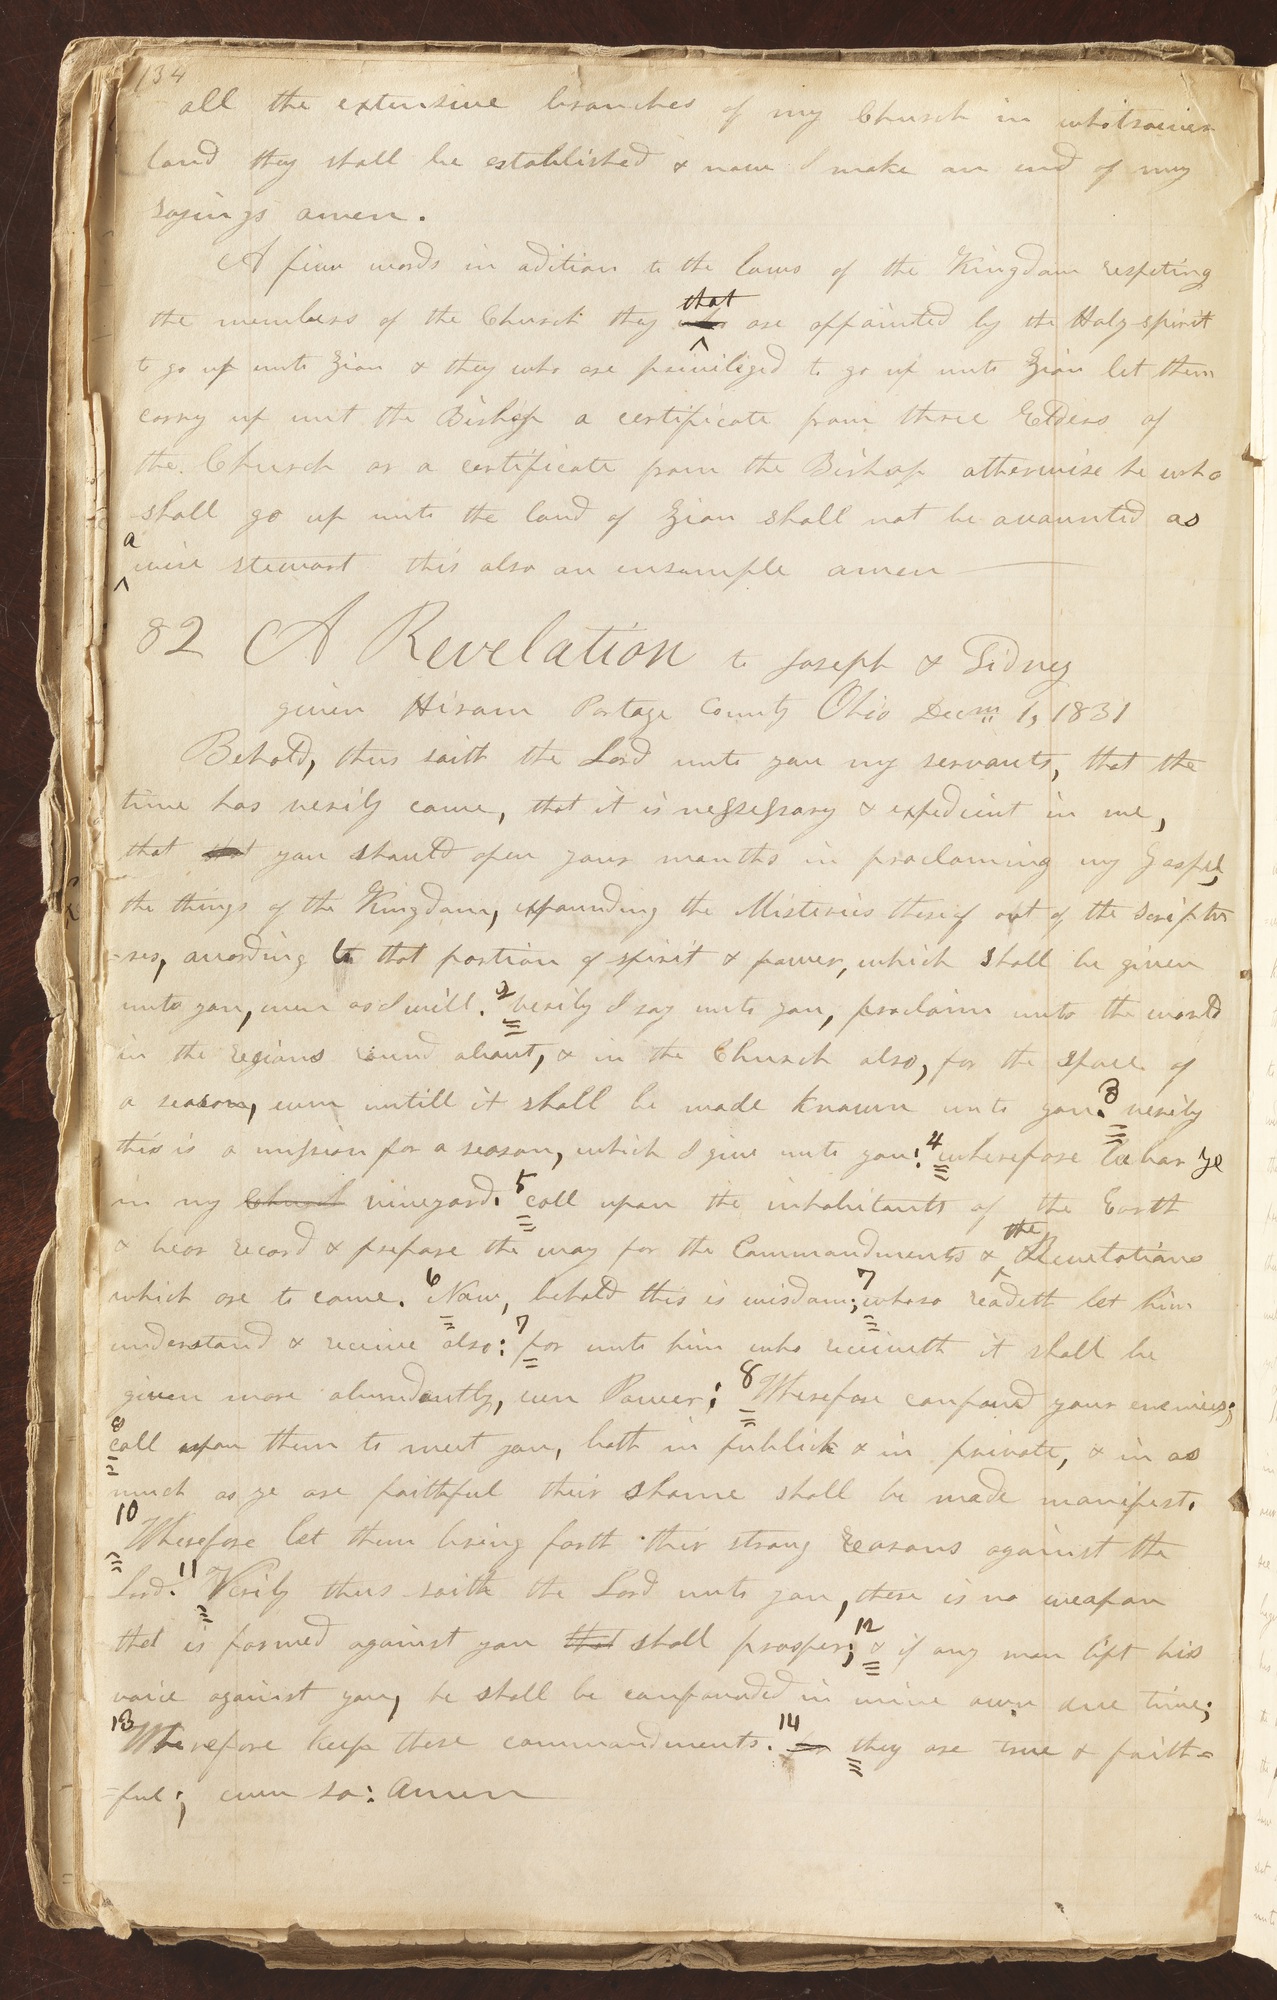 134
all the extensive branches of my Church in whitsoever
land they shall be established & now I make an end of my
sayings amen.
A few words in adition to the laws of the Kingdom respeting
that
the members of the Church they who are appointed by the Holy spirit
to go up unto Zion & they who are priviliged to go up unto Zion let them
carry up unt the Bishop a certificate from three Elders of
the Church or a certificate from the Bishop otherwise he who
shall go up unto the land of Zion shall not be accounted as
a
wise stewart this also an ensample amen
82 A Revelation to Joseph & Sidney
given Hiram Portage County Ohio Decm 1, 1831
Behold, thus saith the Lord unto you my servants, that the
time has verily come, that it is nessessary & expedient in me,
that that you should open your mouths in proclaming my Gospel,
the things of the Kingdom, expounding the Misteries thereof out of the scriptu
=res, according to that portion of spirit & power, which shall be given
unto you, even as I will. 2 verily I say unto you, proclaim unto the world
in the regions round about, & in the Church also, for the space of
a season, even untill it shall be made known unto you. 3 verily
this is a mission for a season, which I give unto you: 4 wherefore labar ye
in my Church vineyard. 5 call upon the inhabitants of the Earth
the
& bear record & prepare the way for the Commandments & Revelations
which are to come. 6 Now, behold this is wisdom; 7 whoso readeth let him
understand & receive also: 7 for unto him who receiveth it shall be
given more abundantly, even Power: 8 Wherefore confound your enemies;
8 call upon them to meet you, both in publick & in private, & in as
much as ye are faithful their shame shall be made manifest.
10 Wherefore let them bring forth their strong reasons against the
Lord. 11 Verily thus saith the Lord unto you, there is no weapon
that is formed against you that shall prosper; 12 & if any man lift his
voice against you, he shall be confounded in mine own due time;
13 Wherefore keep these commandments. 14 for they are true & faith=
=ful; even so: Amen